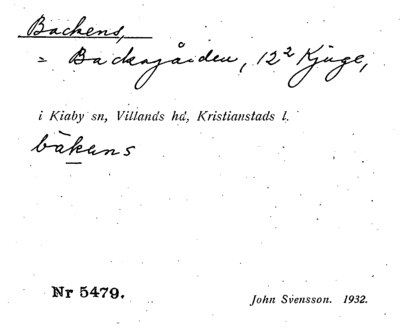 Backens,
= Backagården, 12² Kjuge,
i Kiaby sn, Villands hd, Kristianstads l.
bakens
Nr 5479.
John Svensson. 1932.